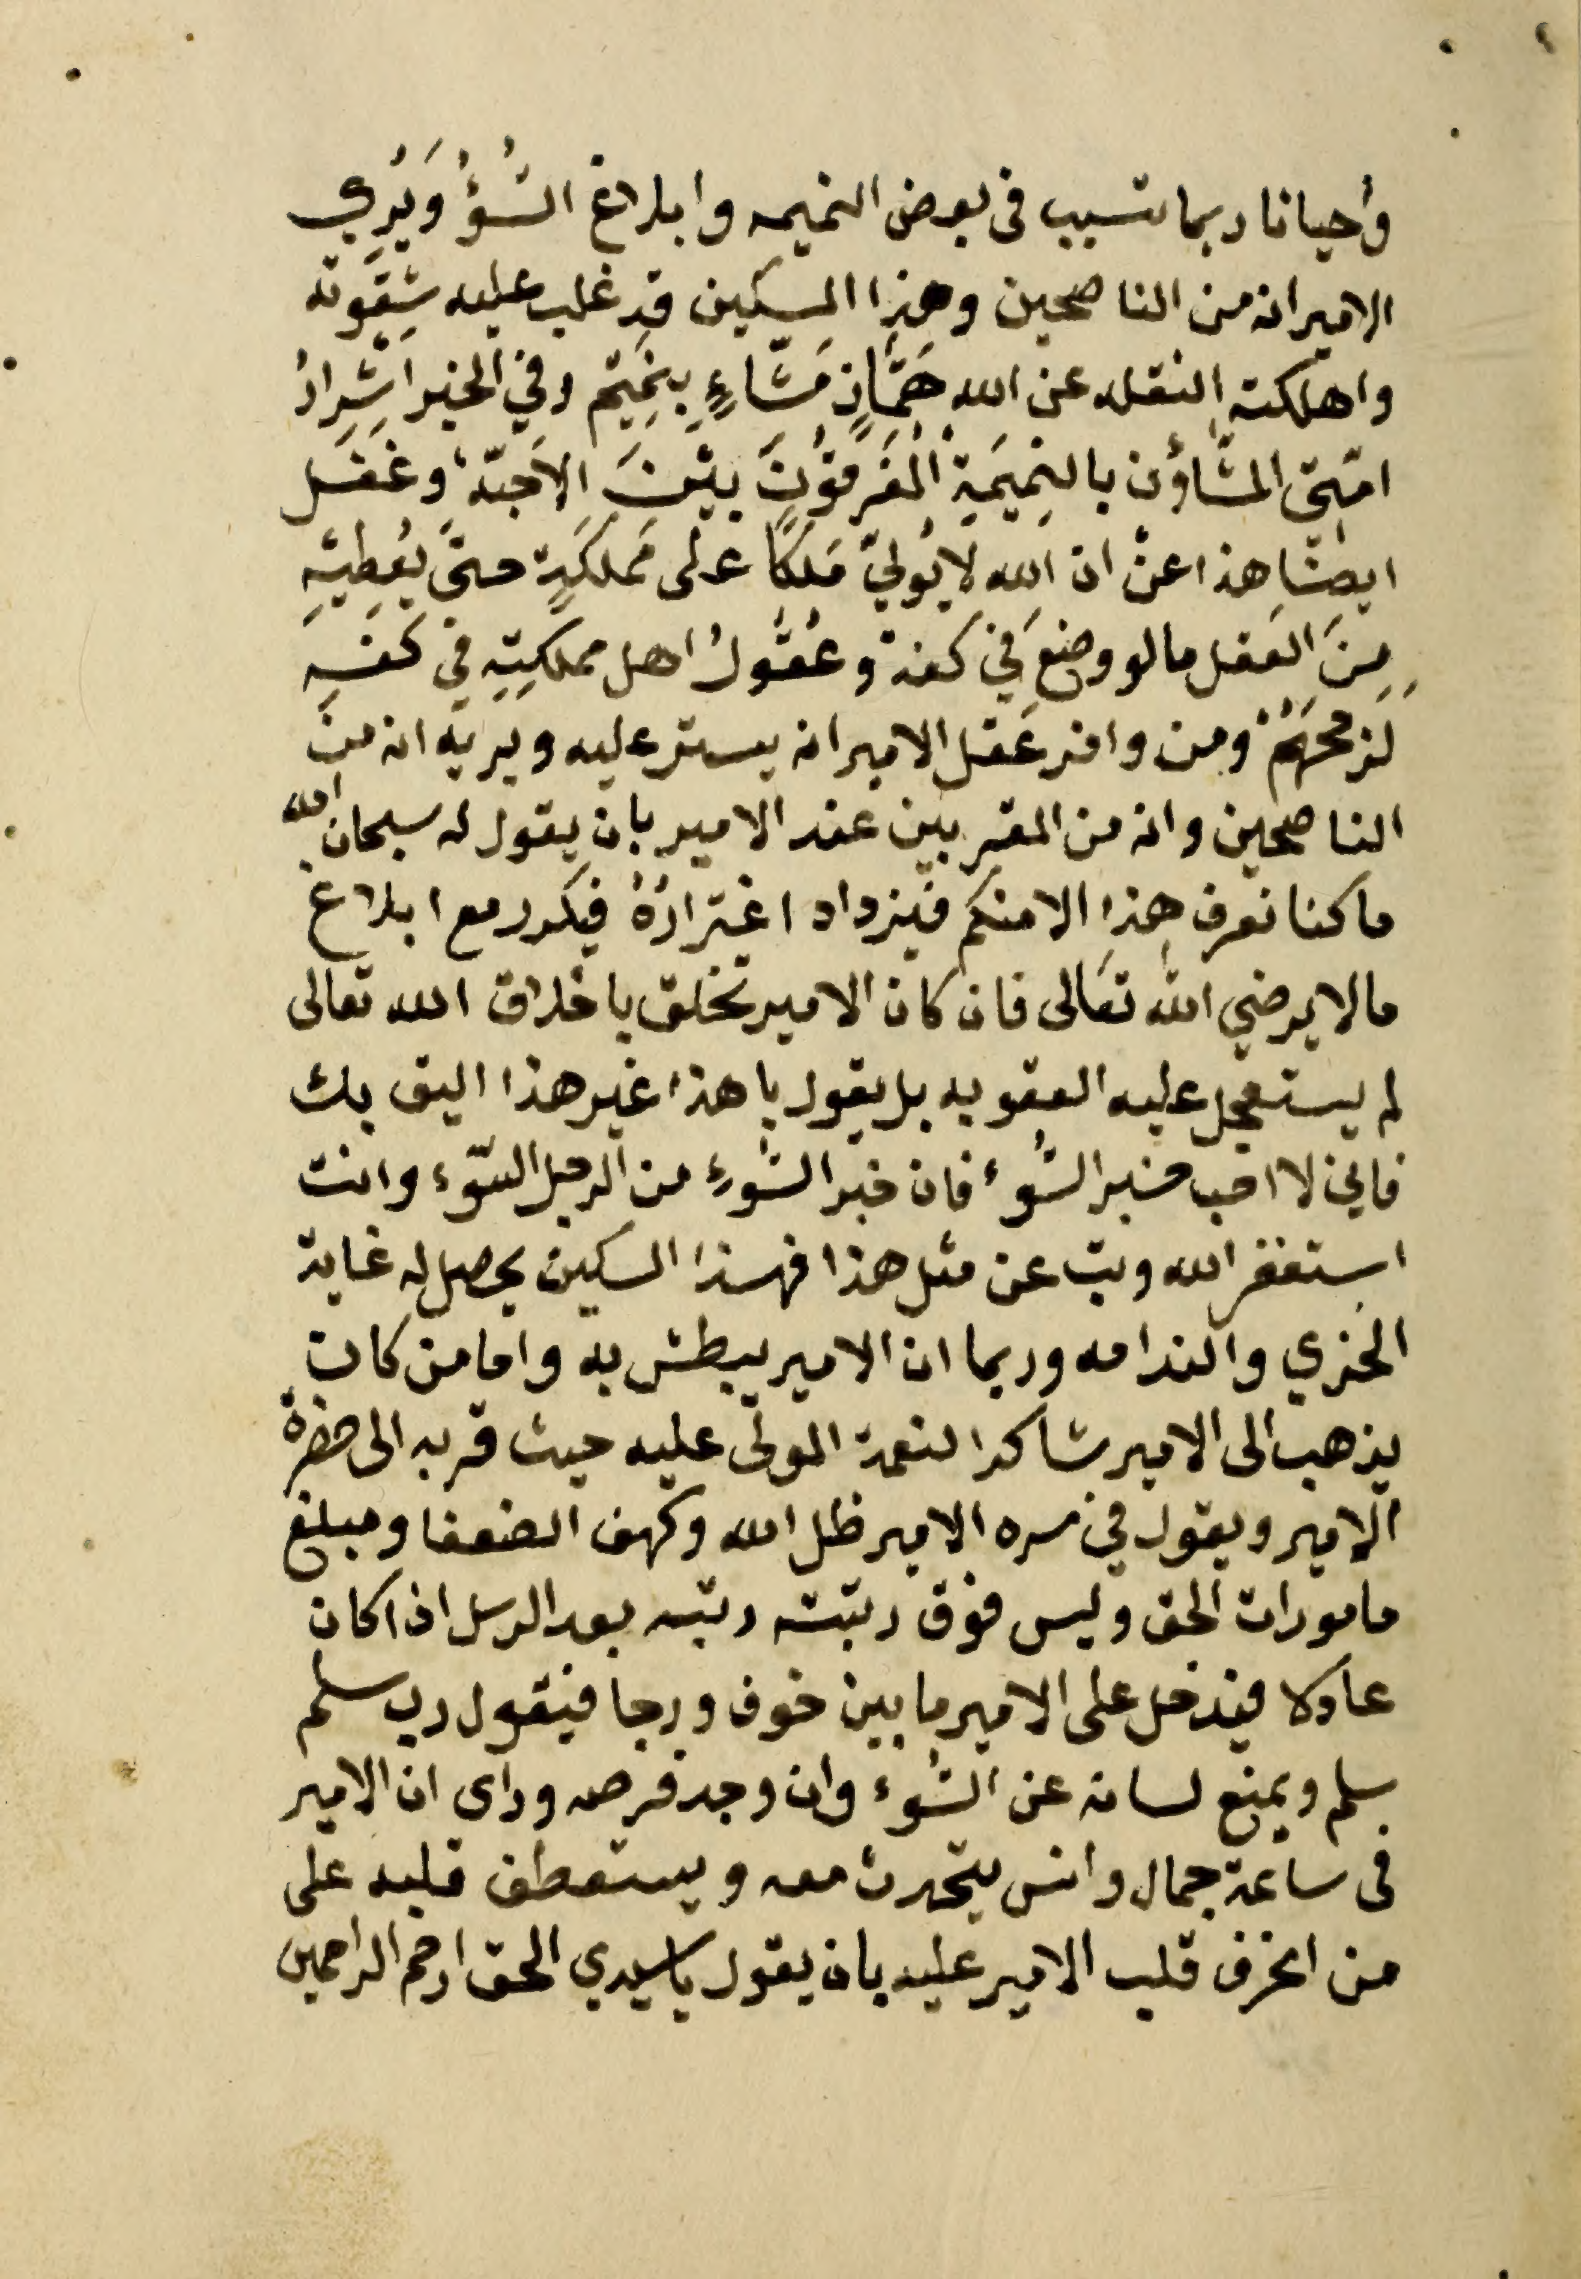 وأحيانا ربما تسبب فى بعض النميمه وابلاغ السُّؤُ وَيُرِي
الامير انه من الناصحين وهذا المسكين قد غلب عليه شِقْوته
واهلكته النقله عن الله هَمَّازٍ مَشَّاءٍ بِنَمِيْمٍ وفي الخبر اَشْرَارُ
امّتى المشّاؤن بالنَمِيمَةِ الْمُفَرِقُونَ بيْنَ الاَحبّة، وغَفَل
ايضًا هذا عن ان الله لا يُوليّ مَلكًا على مَملكَةٍ حتىَّ يُعْطيَهِ
مِنَ العَقل مالو وضعَ في كَفة وعُقُولُ اهل مملكتِهِ في كَفهِ
لَرَجحَهُمْ ومن وافر عَقل الامير انه يستر عليه ويريه انه من
الناصحين وانه من المقربين عند الامير بان يقول له سبحان الله
ما كنا نعرف هذا الا منكم فيزداد اغترارُهُ فيكرر مع ابلاغ
مالا يرضي الله تعَالى فان كان الامير تخلق باخلاق الله تعالى
لم يستعجل عليه العقوبه بل يقول يا هذا غير هذا اليق بك
فاني لا احب خبر السُّوء فان خبر السُّوءِ من الرجل السّوء وانت
استغفر الله وتب عن مثل هذا فهذا المسكين يحصل له غاية
الخزي والندامه وربما ان الامير يبطش به واما من كان
يذهب الى الامير شاكرا لنعمة المولى عليه حيث قربه الى حضرة
الامير ويقول في سره الامير ظل الله وكهف الضعفا ومبلغ
مامورات الحق وليس فوق رتبته رتبه بعد الرسل اذا كان
عادلا فيدخل على الامير ما بين خوف ورجا فيقول رب سلم
سلم ويمنع لسانه عن السُّوء وان وجد فرصه وراى ان الامير
فى ساعة جمال وانس يتحدث معه ويستعطف قلبه على
من انحرف قلب الامير عليه بان يقول يا سيدي الحق ارحم الراحمين